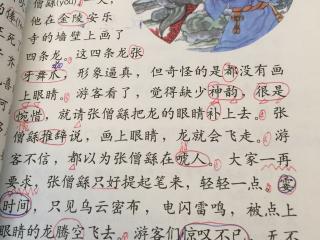 张僧繇(yóu)
他在金陵安乐
寺的墙壁上画了
四条龙。这四条龙张
牙舞爪,形象逼真,但奇怪的是都没有画
上眼睛。游客看了,觉得缺少神韵,很是
惋惜,就请张僧繇把龙的眼睛补上去。张
僧繇推辞说,画上眼睛,龙就会飞走。游
客不信,都以为张僧繇在唬人。大家一再
要求,张僧繇只好提起笔来,轻轻一点。霎
时间,只见乌云密布,电闪雷鸣,被点上
眼睛的龙腾空飞去。游客们惊叹不已,无不